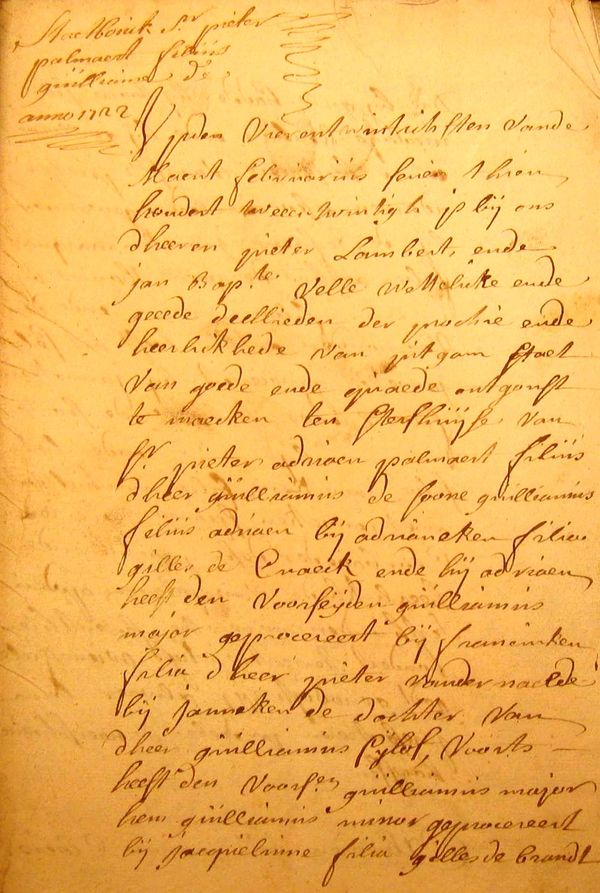 Staetboick Sr pieter
palmaert filius
guilliame de
anno 1722
Upden vierentwintichsten vande
Maent februarius seven thien
hondert tweentwintigh is bij ons
dheeren pieter Lambert, ende
jan Bap.te Velle Wettelicke ende
gecede deellieden der prochie ende
heerlikhede van jutgam Staet
van goede ende quaede ontganst
te maecken ten Sterfhuijse van
Sr pieter adriaen palmaert filius
dheer guilliamus de soone guilliamus
filius adriaen bij adrianeken filia
gilles de Craeck ende hij adriaen
heeft den voorseijden guilliamus
major geprocereert bij francinken
filia dheer pieter vander naelde
bij janneken de dochter van
dheer guilliamus Cijlof, voorts
heeft den voors.en guilliamus major
hem guilliamus minor geprocereert
bij jacquelinne filia gilles de brandt